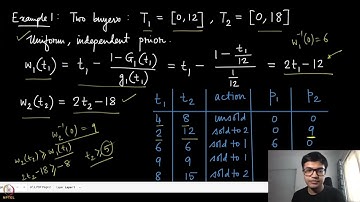 Example 1: Two buyers: T₁ = [0,12], T₂ = [0,18]
Uniform, independent prior.
w₁⁻¹(0) = 6
w₁(t₁) = t₁ - (1 - G₁(t₁)) / g₁(t₁) = t₁ - (1 - t₁/12) / (1/12) = 2t₁ - 12
w₂(t₂) = 2t₂ - 18
w₂⁻¹(0) = 9
w₂(t₂) ≥ w₁(t₁)
2t₂ - 18 ≥ -8
t₂ ≥ 5
t₁ t₂ action p₁ p₂
4 8 unsold 0 0
2 12 sold to 2 0 9
6 6 sold to 1 6 0
9 9 sold to 1
8 15 sold to 2
NPTEL